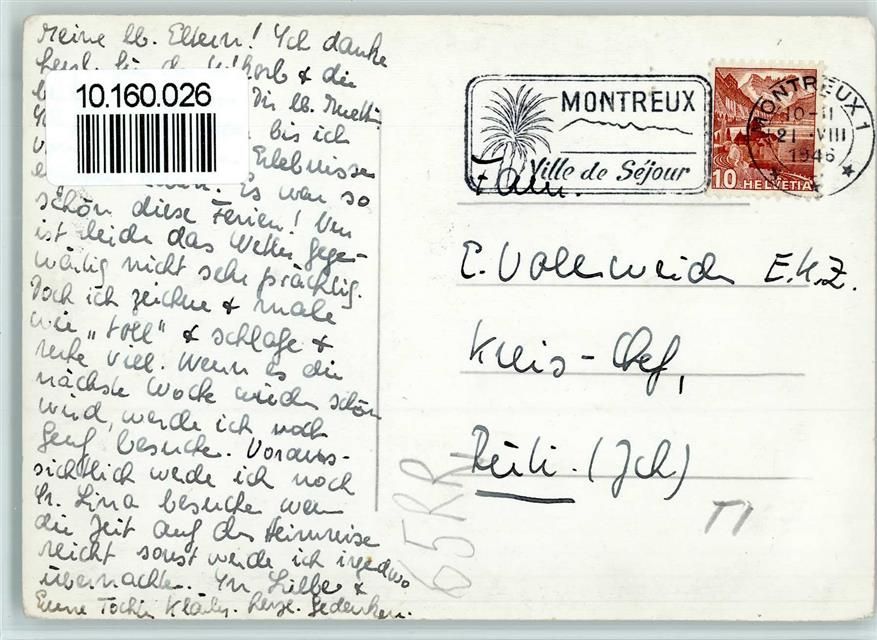 Meine lb. Eltern! Ich danke
herzl. für & die
10.160.026
Die lb. Muetti
bis ich
Erlebnisse
Es war so
schön diese Ferien! Nun
ist leider das Wetter gegen-
wärtig nicht sehr prächtig.
Doch ich zeichne & male
wie „toll" & schlafe &
ruhe viel. Wenn es die
nächste Woche wieder schön
wird, werde ich noch
Genf besuchen. Voraus-
sichtlich werde ich noch
Lina besuchen wenn
die Zeit auf der Heimreise
reicht sonst werde ich irgendwo
übernachten. In Liebe &
Eurer Tochter Klärly. herzl. Gedenken.
MONTREUX
Ville de Séjour
10 HELVETIA
MONTREUX 1
10-11
21.VIII
1946
Fam.
E. Vollenweider E.K.Z.
Kreis-Chef,
Rüti. (Zch)
65RR
T1